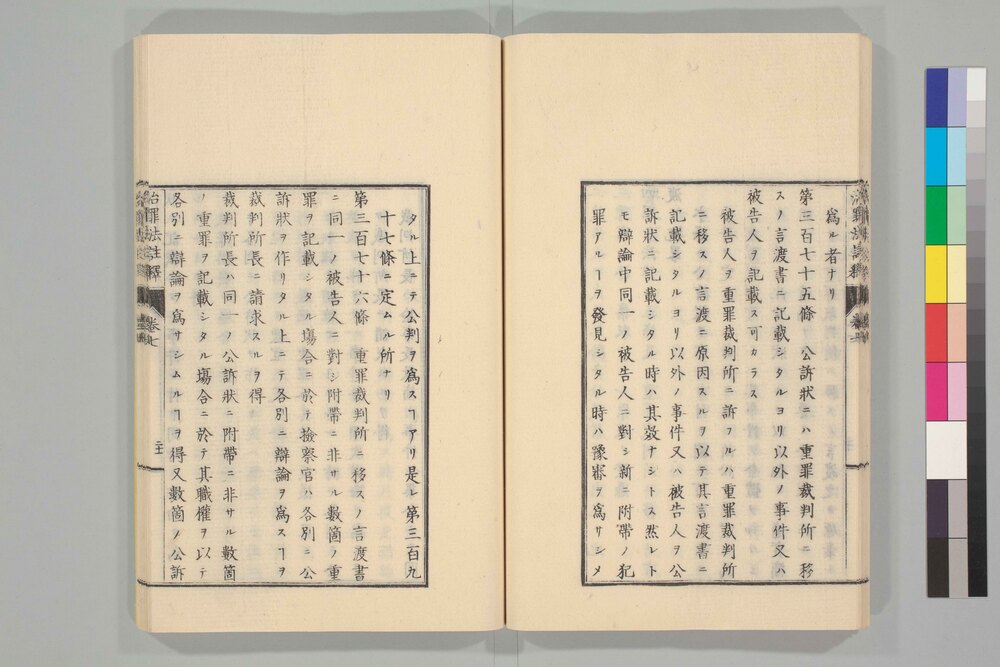 爲ル者ナリ
第三百七十五條 公訴狀ニハ重罪裁判所ニ移
スノ言渡書ニ記載シタルヨリ以外ノ事件又ハ
被告人ヲ記載ス可カラス
被告人ヲ重罪裁判所ニ訴フルハ重罪裁判所
ニ移スノ言渡ニ原因スルヲ以テ其言渡書ニ
記載シタルヨリ以外ノ事件又ハ被告人ヲ公
訴狀ニ記載シタル時ハ其效ナシトス然レト
モ辯論中同一ノ被告人ニ對シ新ニ附帶ノ犯
罪アルヿヲ發見シタル時ハ豫審ヲ爲サシメ
タル上ニテ公判ヲ爲スヿアリ是レ第三百九
十七條ニ定ムル所ナリ
第三百七十六條 重罪裁判所ニ移スノ言渡書
ニ同一ノ被告人ニ對シ附帶ニ非サル數箇ノ重
罪ヲ記載シタル塲合ニ於テ撿察官ハ各別ニ公
訴狀ヲ作リタル上ニテ各別ニ辯論ヲ爲スヿヲ
裁判所長ニ請求スルヲ得
裁判所長ハ同一ノ公訴狀ニ附帶ニ非サル數箇
ノ重罪ヲ記載シタル塲合ニ於テ其職權ヲ以テ
各別ニ辯論ヲ爲サシムルヿヲ得又數箇ノ公訴
治罪法註釋 卷七